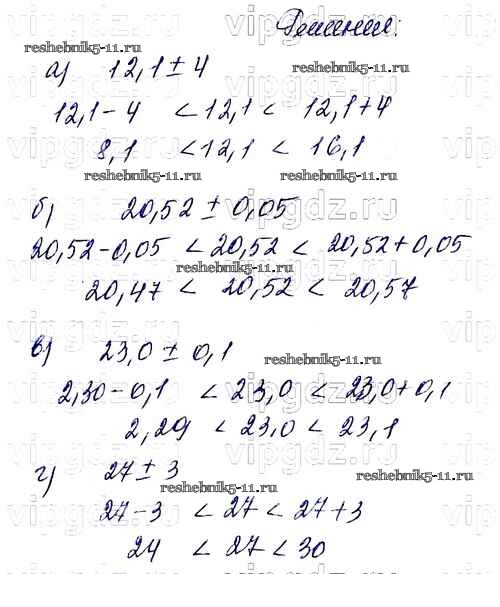 Решения:
reshebnik5-11.ru
а) 12,1 ± 4
12,1 - 4 < 12,1 < 12,1 + 4
8,1 < 12,1 < 16,1
reshebnik5-11.ru reshebnik5-11.ru
б) 20,52 ± 0,05
20,52 - 0,05 < 20,52 < 20,52 + 0,05
reshebnik5-11.ru
20,47 < 20,52 < 20,57
vipgdz.ru
в) 23,0 ± 0,1
reshebnik5-11.ru
2,30 - 0,1 < 23,0 < 23,0 + 0,1
2,29 < 23,0 < 23,1
г) 27 ± 3
reshebnik5-11.ru reshebnik5-11.ru
27 - 3 < 27 < 27 + 3
24 < 27 < 30